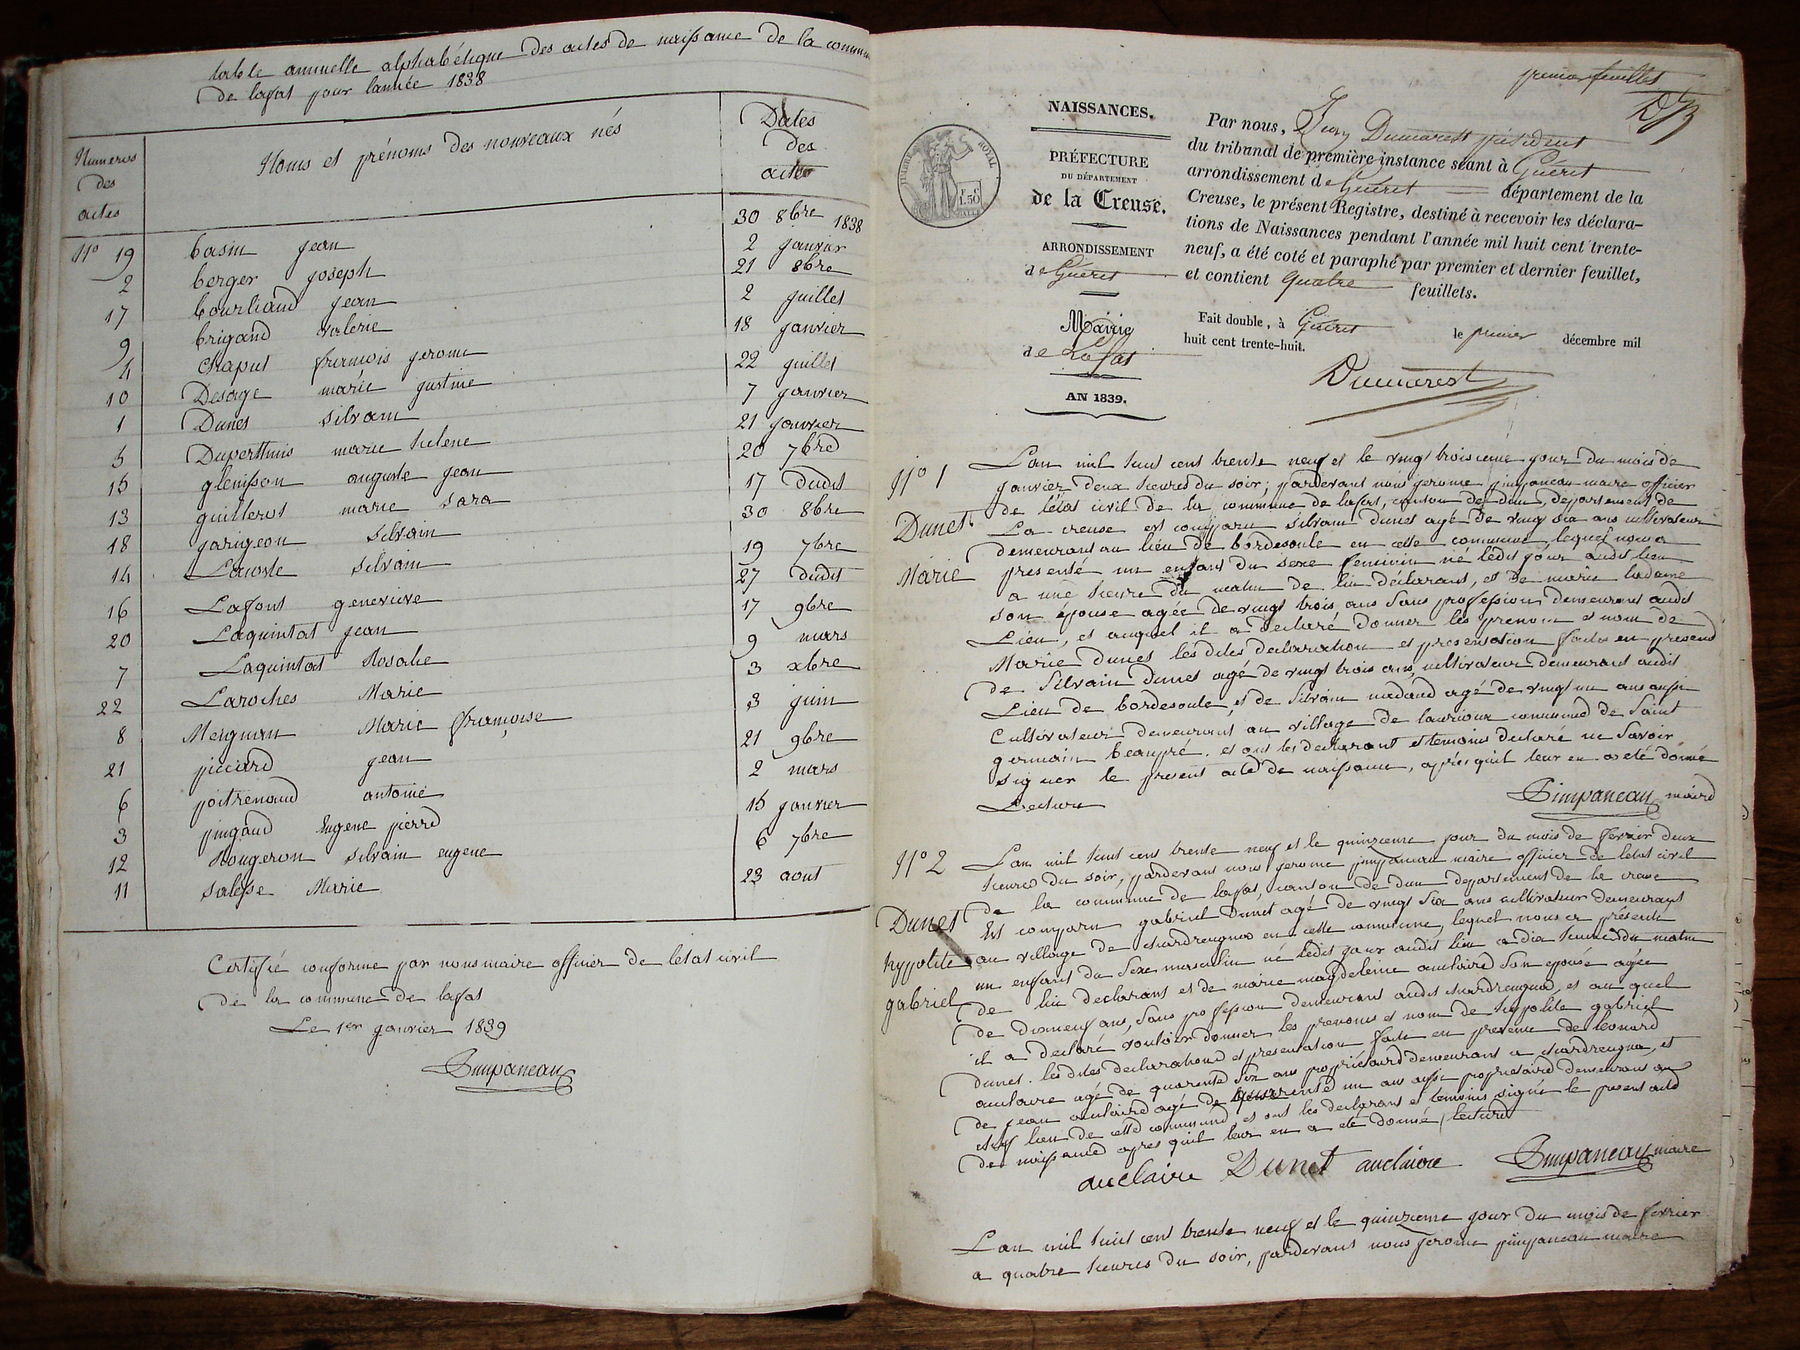 table annuelle alphabétique des actes de naissance de la commune
de lafat pour l'année 1838
Numeros
des
actes
Noms et prénoms des nouveaux nés
Dates
des
actes
No 19 basin jean 30 8bre 1838
2 berger joseph 2 janvier
17 bourliaud jean 21 8bre
9 brigand valerie 2 juillet
4 chaput françois jerome 18 janvier
10 Desage marie justine 22 juillet
1 Dunet silvain 7 janvier
5 Duperthuis marie helene 21 janvier
15 glenisson auguste jean 20 7bre
13 guillerot marie sara 17 dudit
18 jarigeon silvain 30 8bre
14 Lacoste silvain 19 7bre
16 Lafont genevieve 27 dudit
20 Laquintat jean 17 9bre
7 Laquintat Rosalie 9 mars
22 Laroches Marie 3 xbre
8 Meignan Marie françoise 3 juin
21 piccard jean 21 9bre
6 poitrenaud antoine 2 mars
3 pingaud Eugene pierre 15 janvier
12 Rougeron silvain eugene 6 7bre
11 salesse Marie 23 aout
Certifié conforme par nous maire officier de letat civil
de la commune de lafat
Le 1er janvier 1839
Pimpaneau
premier feuillet
NAISSANCES.
PRÉFECTURE
DU DÉPARTEMENT
de la Creuse.
ARRONDISSEMENT
de Guéret
Mairie
de Lafat
AN 1839.
TIMBRE ROYAL
1.50
Par nous, Dumarest président
du tribunal de première instance séant à Guéret
arrondissement de Guéret département de la
Creuse, le présent Registre, destiné à recevoir les déclara-
tions de Naissances pendant l'année mil huit cent trente-
neuf, a été coté et paraphé par premier et dernier feuillet,
et contient quatre feuillets.
Fait double, à Guéret le premier décembre mil
huit cent trente-huit.
Dumarest
No 1
Dunet
Marie
Lan mil huit cent trente neuf et le vingt troisieme jour du mois de
janvier deux heures du soir, pardevant nous jerome pimpaneau maire officier
de létat civil de la commune de lafat, canton de dun, departement de
La creuse est comparu silvain dunet agé de vingt six ans cultivateur
demeurant au lieu de bordesoule en cette commune lequel nous a
presenté un enfant du sexe feminin né ledit jour audit lieu
a une heure du matin de lui déclarant, et de marie ladame
son epouse agée de vingt trois ans sans profession demeurant audit
Lieu, et auquel il a declaré donner les prenom et nom de
Marie dunet les dites declaration et presentation faites en presence
de Silvain dunet agé de vingt trois ans, cultivateur demeurant audit
Lieu de bordesoule, et de silvain nadaud agé de vingt un ans aussi
Cultivateur demeurant au village de commune de Saint
germain beaupré. et ont les declarant et temoins declaré ne savoir
signer le present acte de naissance, après quil leur en a eté donné
Lecture
Pimpaneau maire
No 2
Dunet
hypolite
gabriel
Lan mil huit cent trente neuf et le quinzieme jour du mois de fevrier deux
heures du soir, pardevant nous jerome pimpaneau maire officier de letat civil
de la commune de lafat, canton de dun departement de la creuse
Est comparu gabriel Dunet agé de vingt six ans cultivateur demeurant
au village de chardreugnat en cette commune, lequel nous a presenté
un enfant du sexe masculin né ledit jour audit lieu a dix heures du matin
de lui declarant et de marie magdeleine auclaire son epouse agée
de dixneuf ans, sans profession demeurant audit chardreugnat, et au quel
il a declaré vouloir donner les prenoms et nom de hypolite gabriel
dunet. les dites declarations et presentation faite en presence de leonard
auclaire agé de quarente six ans propriétaire demeurant a chardreugnat, et
de jean auclaire agé de quarente un ans aussi propriétaire demeurant au
chef lieu de cette commune, et ont les declarant et temoins signé le present acte
de naissance apres quil leur en a eté donné lecture
auclaire Dunet auclaire Pimpaneau maire
Lan mil huit cent trente neuf et le quinzieme jour du mois de fevrier
a quatre heures du soir, pardevant nous jerome pimpaneau maire